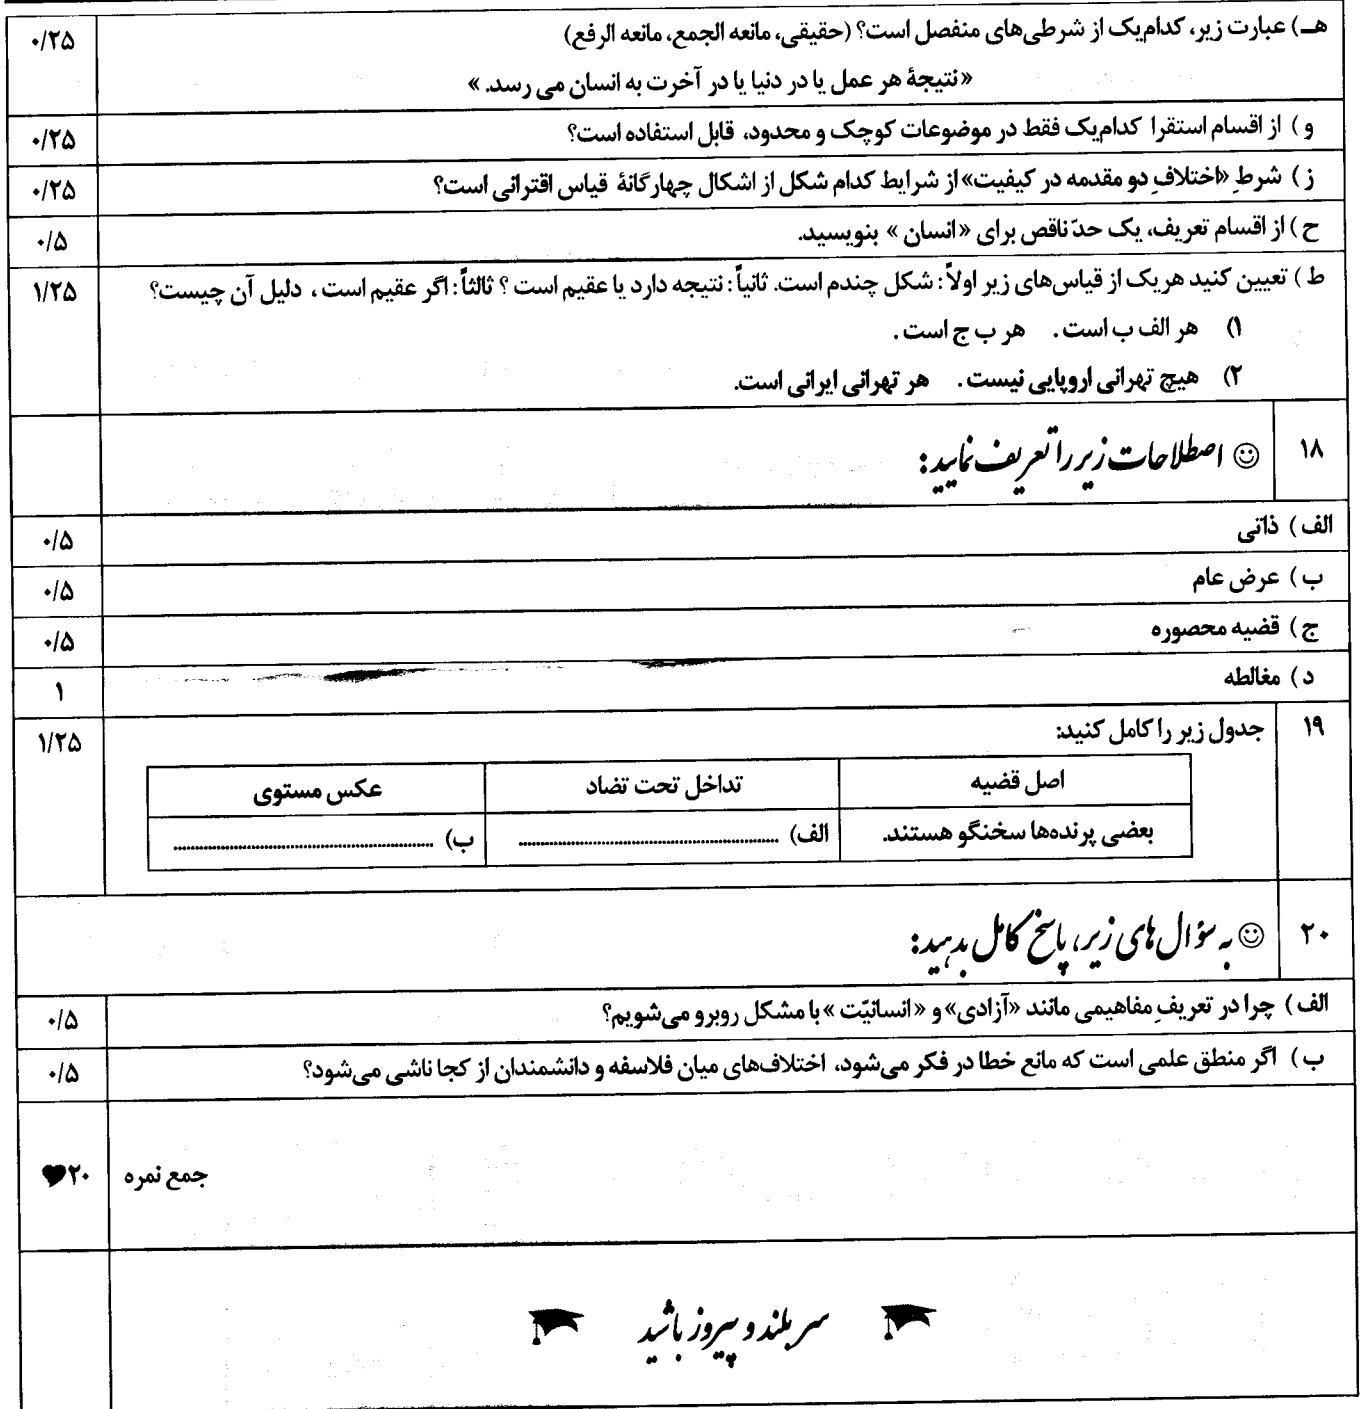 هـ) عبارت زیر، کدام‌یک از شرطی‌های منفصل است؟ (حقیقی، مانعه الجمع، مانعه الرفع) ۰/۲۵
«نتیجهٔ هر عمل یا در دنیا یا در آخرت به انسان می رسد.»
و ) از اقسام استقرا کدام‌یک فقط در موضوعات کوچک و محدود، قابل استفاده است؟ ۰/۲۵
ز ) شرطِ «اختلافِ دو مقدمه در کیفیت» از شرایط کدام شکل از اشکال چهارگانهٔ قیاس اقترانی است؟ ۰/۲۵
ح ) از اقسام تعریف، یک حدّ ناقص برای «انسان» بنویسید. ۰/۵
ط ) تعیین کنید هریک از قیاس‌های زیر اولاً : شکل چندم است. ثانیاً : نتیجه دارد یا عقیم است ؟ ثالثاً : اگر عقیم است ، دلیل آن چیست؟ ۱/۲۵
۱) هر الف ب است . هر ب ج است .
۲) هیچ تهرانی اروپایی نیست . هر تهرانی ایرانی است.
۱۸ ☺ اصطلاحات زیر را تعریف نمایید:
الف ) ذاتی ۰/۵
ب ) عرض عام ۰/۵
ج ) قضیه محصوره ۰/۵
د ) مغالطه ۱
۱۹ جدول زیر را کامل کنید: ۱/۲۵
اصل قضیه تداخل تحت تضاد عکس مستوی
بعضی پرنده‌ها سخنگو هستند. الف) ........................ ب) ........................
۲۰ ☺ به سؤال های زیر، پاسخ کامل بدهید:
الف ) چرا در تعریفِ مفاهیمی مانند «آزادی» و «انسانیّت» با مشکل روبرو می‌شویم؟ ۰/۵
ب ) اگر منطق علمی است که مانع خطا در فکر می‌شود، اختلاف‌های میان فلاسفه و دانشمندان از کجا ناشی می‌شود؟ ۰/۵
جمع نمره ۲۰
سربلند و پیروز باشید